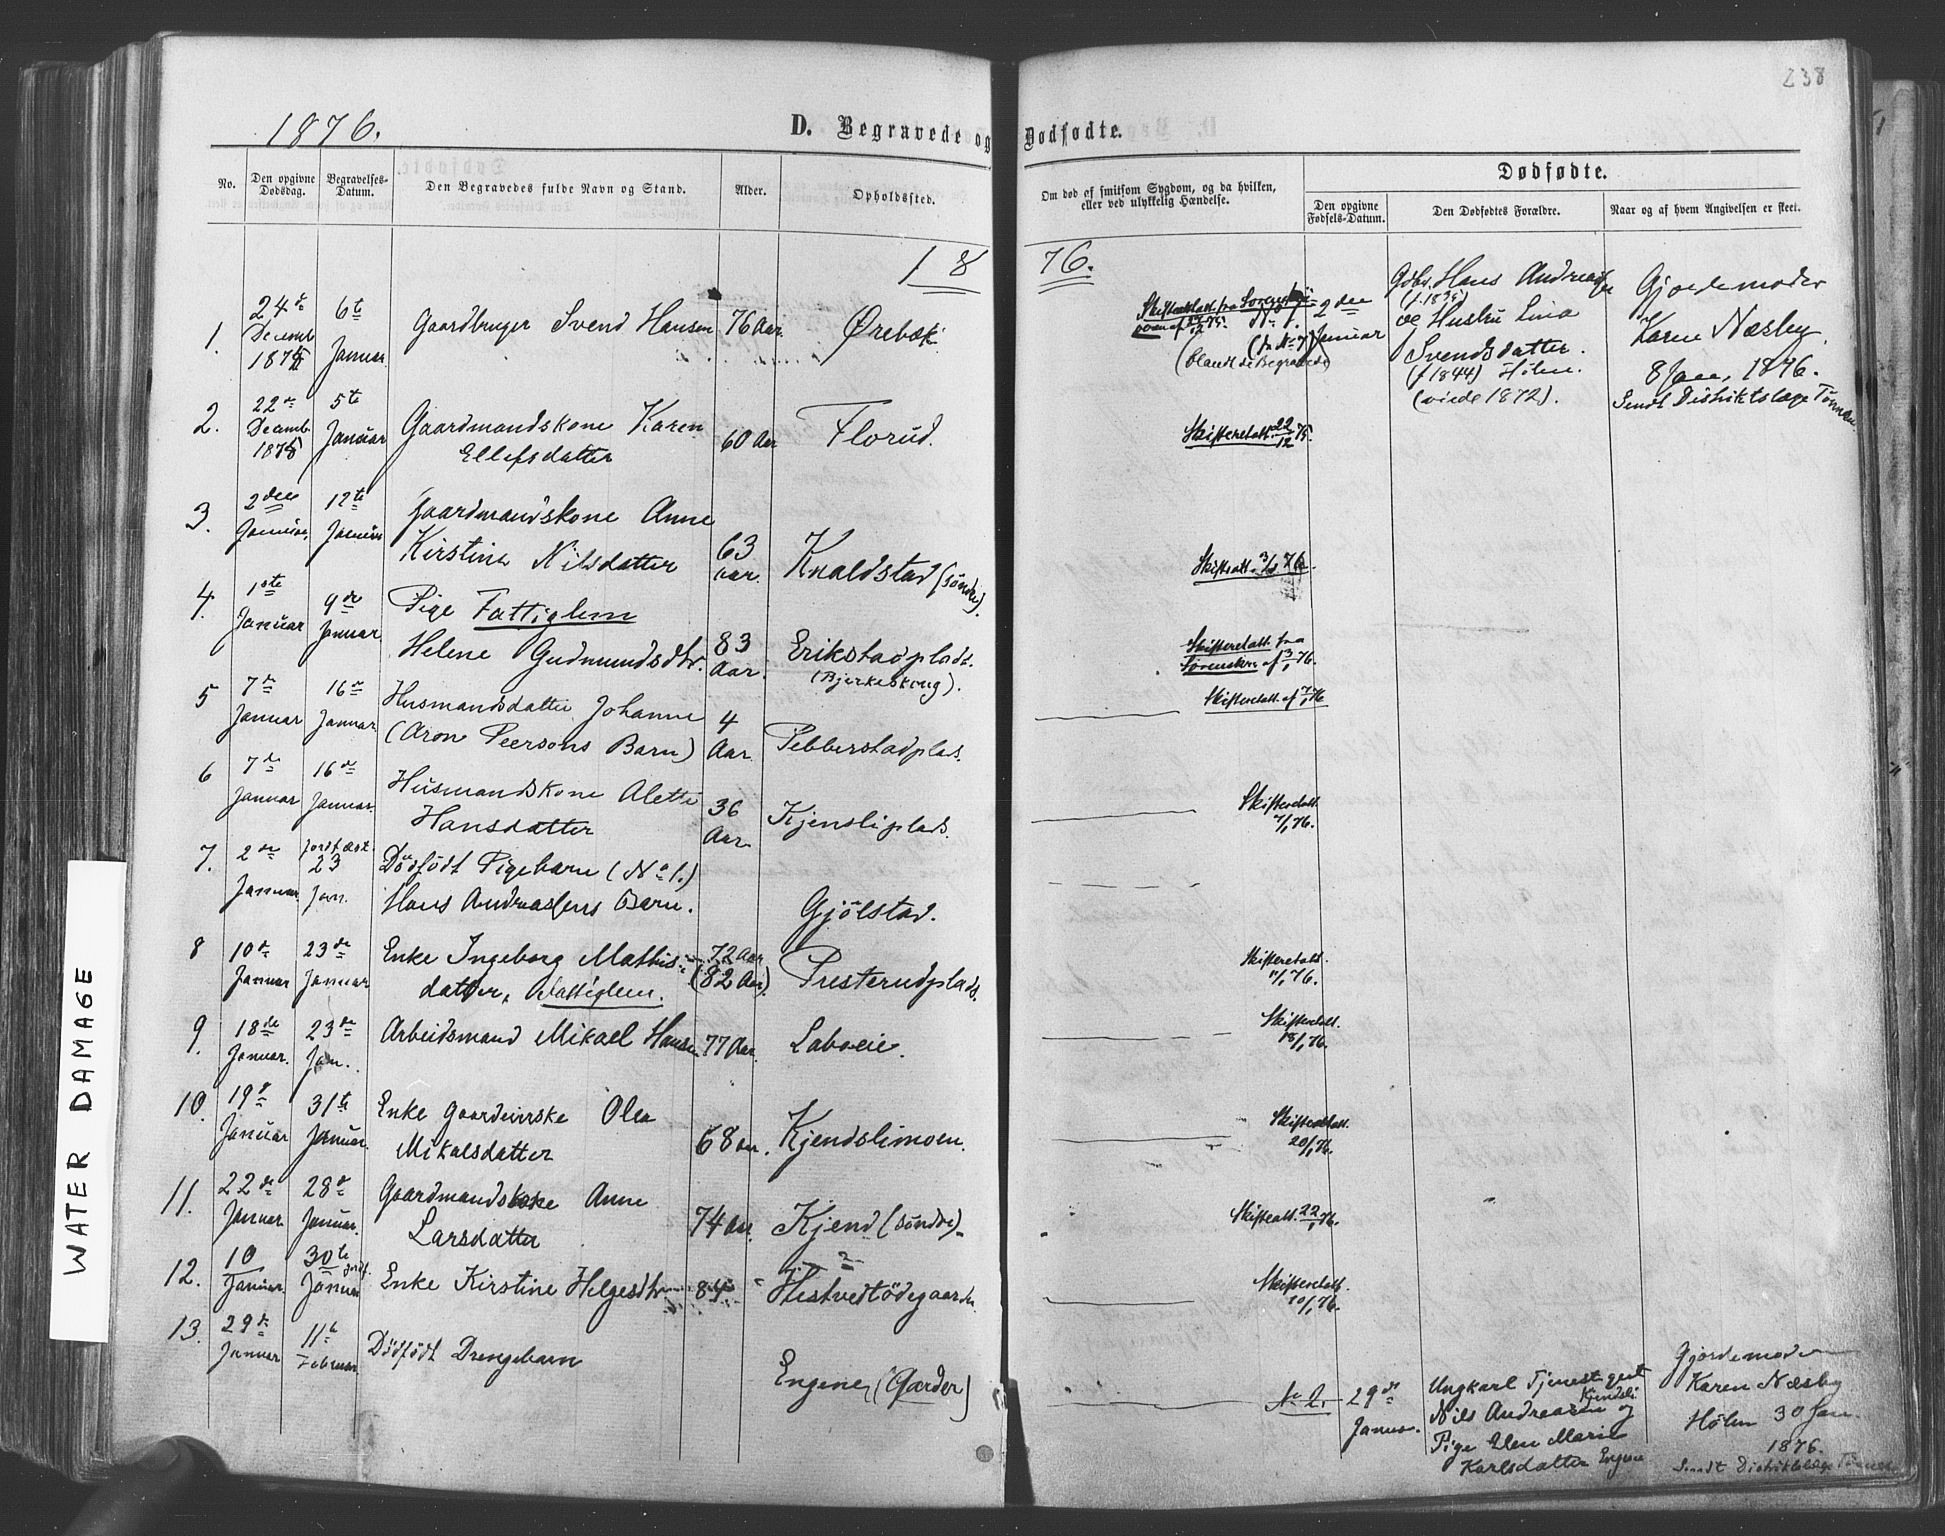 238
1876.
D. Begravede og Dødfødte.
No.
Den opgivne Dødsdag.
Begravelses-Datum.
Den Begravedes fulde Navn og Stand.
Alder.
Opholdssted.
Om død af smitsom Sygdom, og da hvilken,
eller ved ulykkelig Hændelse.
Dødfødte.
Den opgivne Fødsels-Datum.
Den Dødfødtes Forældre.
Naar og af hvem Angivelsen er skeet.
18 76.
1. 24de Decemb 1875 6te Januar Gaardbruger Svend Hansen 76 Aar Ørebæk
No 1.
(blandt de Begravede)
2den Januar
Hans Andreas
(f. 1835)
og Hustru Lina
Svendsdatter.
(f 1844) Hølen.
(viede 1872).
Gjordemoder
Karen Næsby.
8 Jan. 1876.
Sendt Distriktslæge Tønnes.
2. 22de Decemb 1875 5te Januar Gaardmandskone Karen
Ellefsdatter 60 Aar Florud.
Skifteratt. 22/12 75.
3. 2den Januar 12te Januar Gaardmandskone Anne
Kirstine Nilsdatter 63 Aar. Knaldstad (søndre).
Skifteatt. 3/1 76.
4. 1ste Januar 9de Januar Pige Fattiglem
Helene Gudmundsdtr. 83 Aar. Erikstadplads.
(Bjerkeskoug).
Skifteretatt. fra
Sorenskr. af 3/1 76.
5 7de Januar 16de Januar Husmandsdatter Johanne
(Aron Peersons Barn) 4 Aar Pebberstadplads.
Skifteretatt. af 7/1 76
6 7de Januar 16de Januar. Husmandskone Alette
Hansdatter 36 Aar Kjensliplads.
Skifteretatt.
7/1 76.
7. 2de Januar Jordfæst. 23 Jan. Dødfødt Pigebarn (No 1.)
Hans Andreassens Barn. Gjölstad.
8 10de Januar 23de Januar Enke Ingeborg Mathis-
datter, Fattiglem. 72 Aar (82 Aar). Presterudplads.
Skifteretatt.
11/1 76.
9. 18de Januar. 23de Jan. Arbeidsmand Mikael Hansen 77 Aar. Laboeie.
Skifteretatt.
18/1 76.
10. 19de Januar 31te Januar. Enke Olea
Mikalsdatter 68 Aar. Kjendslimoen.
Skifteretatt.
20/1 76.
11. 22de Januar 28de Januar. Gaardmandskone Anne
Larsdatter 74 Aar. Kjend (søndre).
Skifteatt. 22/1 76.
12. 10 Januar. 30te Januar Enke Kirstine Helgesdtr 84 Hestvedtödegaarden
Skifteretatt.
10/1 76.
13. 29de Januar 11te Februar Dödfödt Drengebarn
Engene (Garder)
No 2. 29de Januar.
Ungkarl Tjenestgut
Kjendsli
Nils Andreassen og
Pige Elen Marie
Karlsdatter Engene
Gjordemoder
Karen Næsby
Hølen 30 Jan.
1876.
Sendt Distriktslæge Tønnes.
WATER DAMAGE